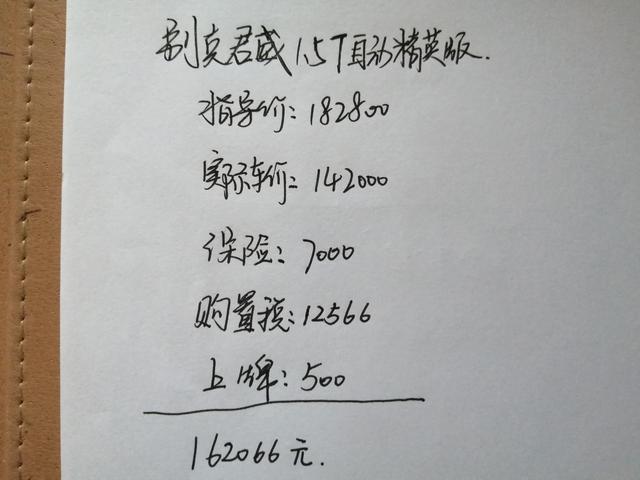 别克君威1.5T自动精英版.
指导价:182800
实际车价:142000
保险:7000
购置税:12566
上牌:500
162066元.